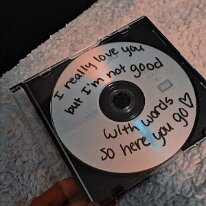 I really love you
but I'm not good
with words
so here you go♡